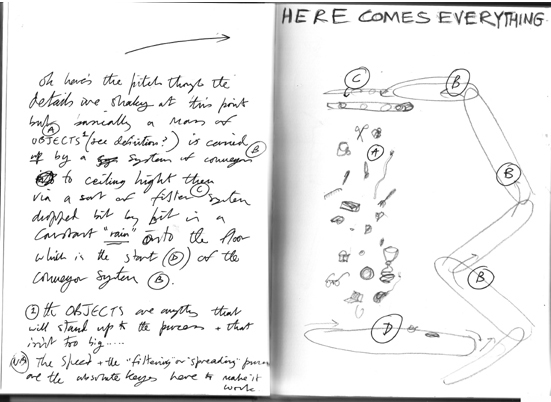 oh here's the pitch though the
details are shaky at this point
but basically a mass of
A
OBJECTS 1 (see definition?) is carried
B
up by a system of conveyors
to ceiling height then
via a sort of filter system
C
dropped bit by bit in a
constant "rain" onto the floor
which is the start (D) of the
conveyor system (B).
1 the OBJECTS are anything that
will stand up to the process + that
isn't too big.....
NB The speed + the "filtering" or "spreading" process
are the absolute keys here to make it
work
HERE COMES EVERYTHING.
C
B
A
B
B
D